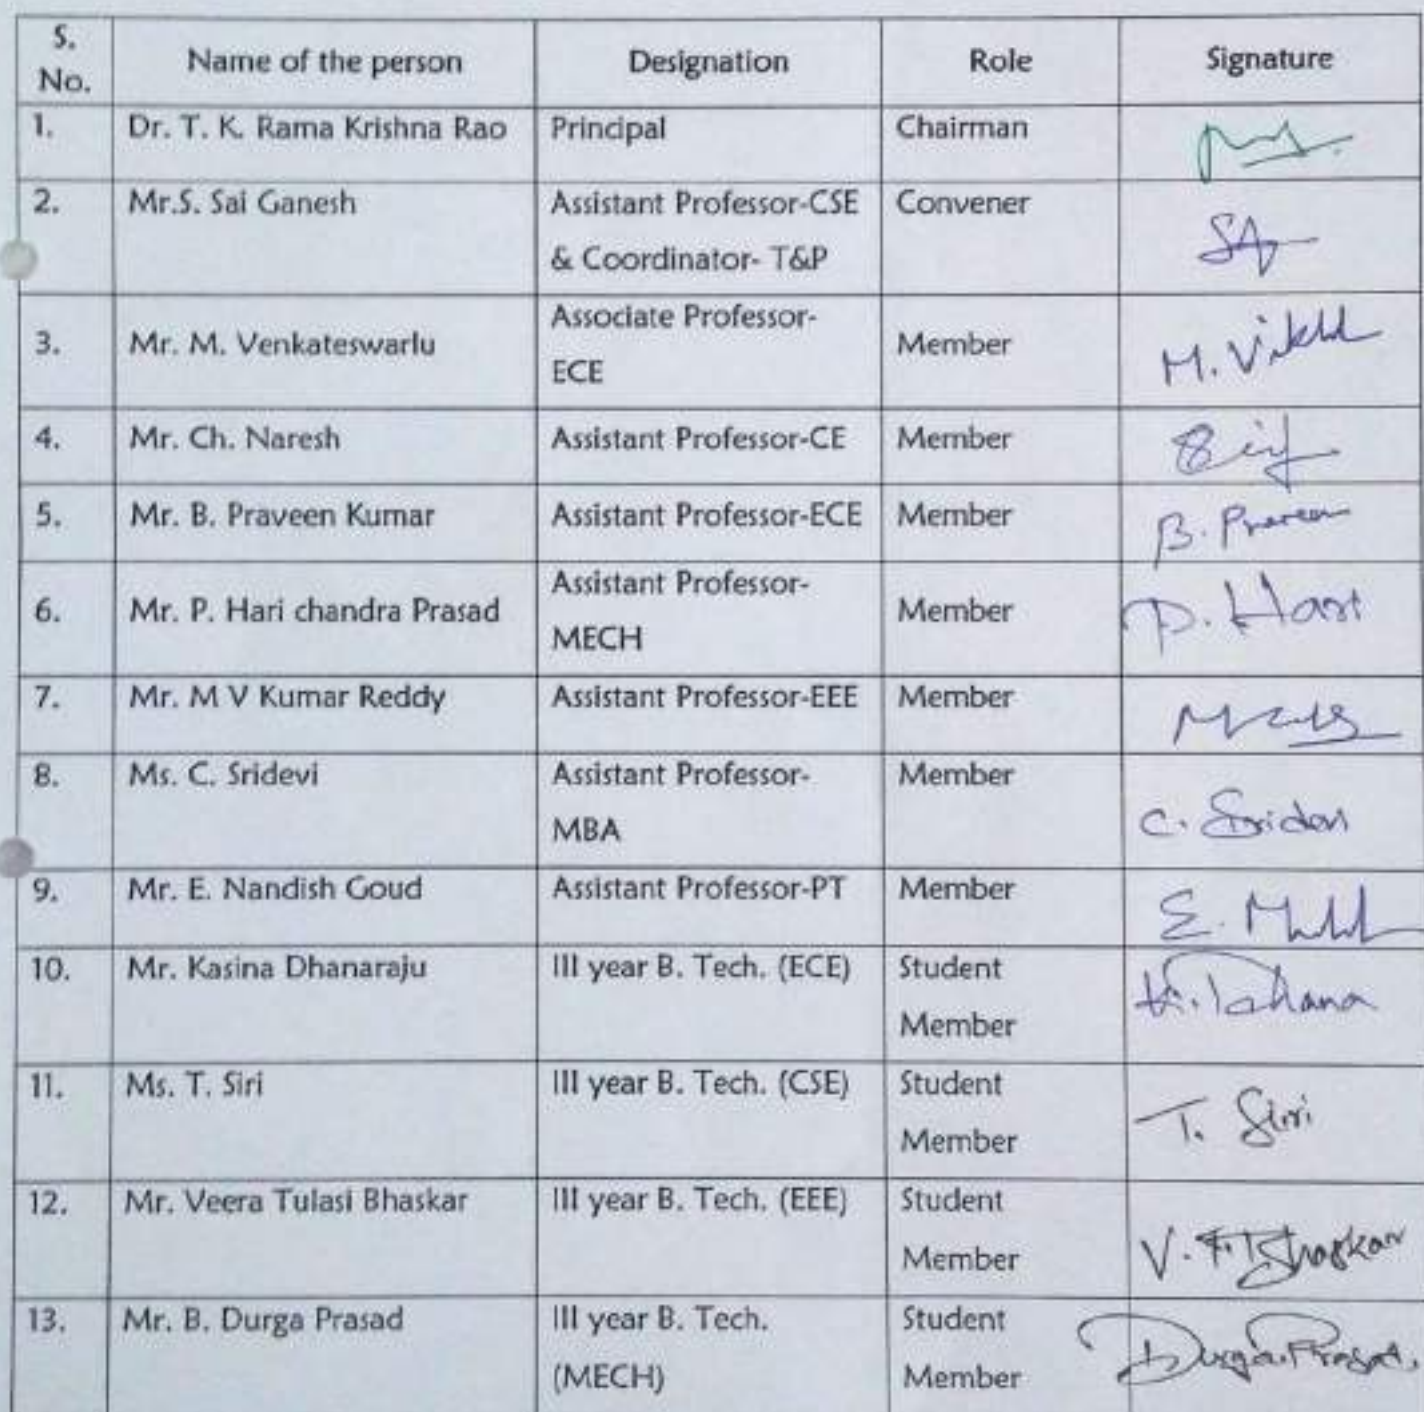 S. No. Name of the person Designation Role Signature
1. Dr. T. K. Rama Krishna Rao Principal Chairman
2. Mr.S. Sai Ganesh Assistant Professor-CSE Convener
& Coordinator- T&P
3. Mr. M. Venkateswarlu Associate Professor- Member
ECE
4. Mr. Ch. Naresh Assistant Professor-CE Member
5. Mr. B. Praveen Kumar Assistant Professor-ECE Member B. Praveen
6. Mr. P. Hari chandra Prasad Assistant Professor- Member P. Hari
MECH
7. Mr. M V Kumar Reddy Assistant Professor-EEE Member
8. Ms. C. Sridevi Assistant Professor- Member C. Sridevi
MBA
9. Mr. E. Nandish Goud Assistant Professor-PT Member
10. Mr. Kasina Dhanaraju III year B. Tech. (ECE) Student K. Dhana
Member
11. Ms. T. Siri III year B. Tech. (CSE) Student T. Siri
Member
12. Mr. Veera Tulasi Bhaskar III year B. Tech. (EEE) Student
Member V. T. Bhaskar
13. Mr. B. Durga Prasad III year B. Tech. Student
(MECH) Member Durga Prasad.